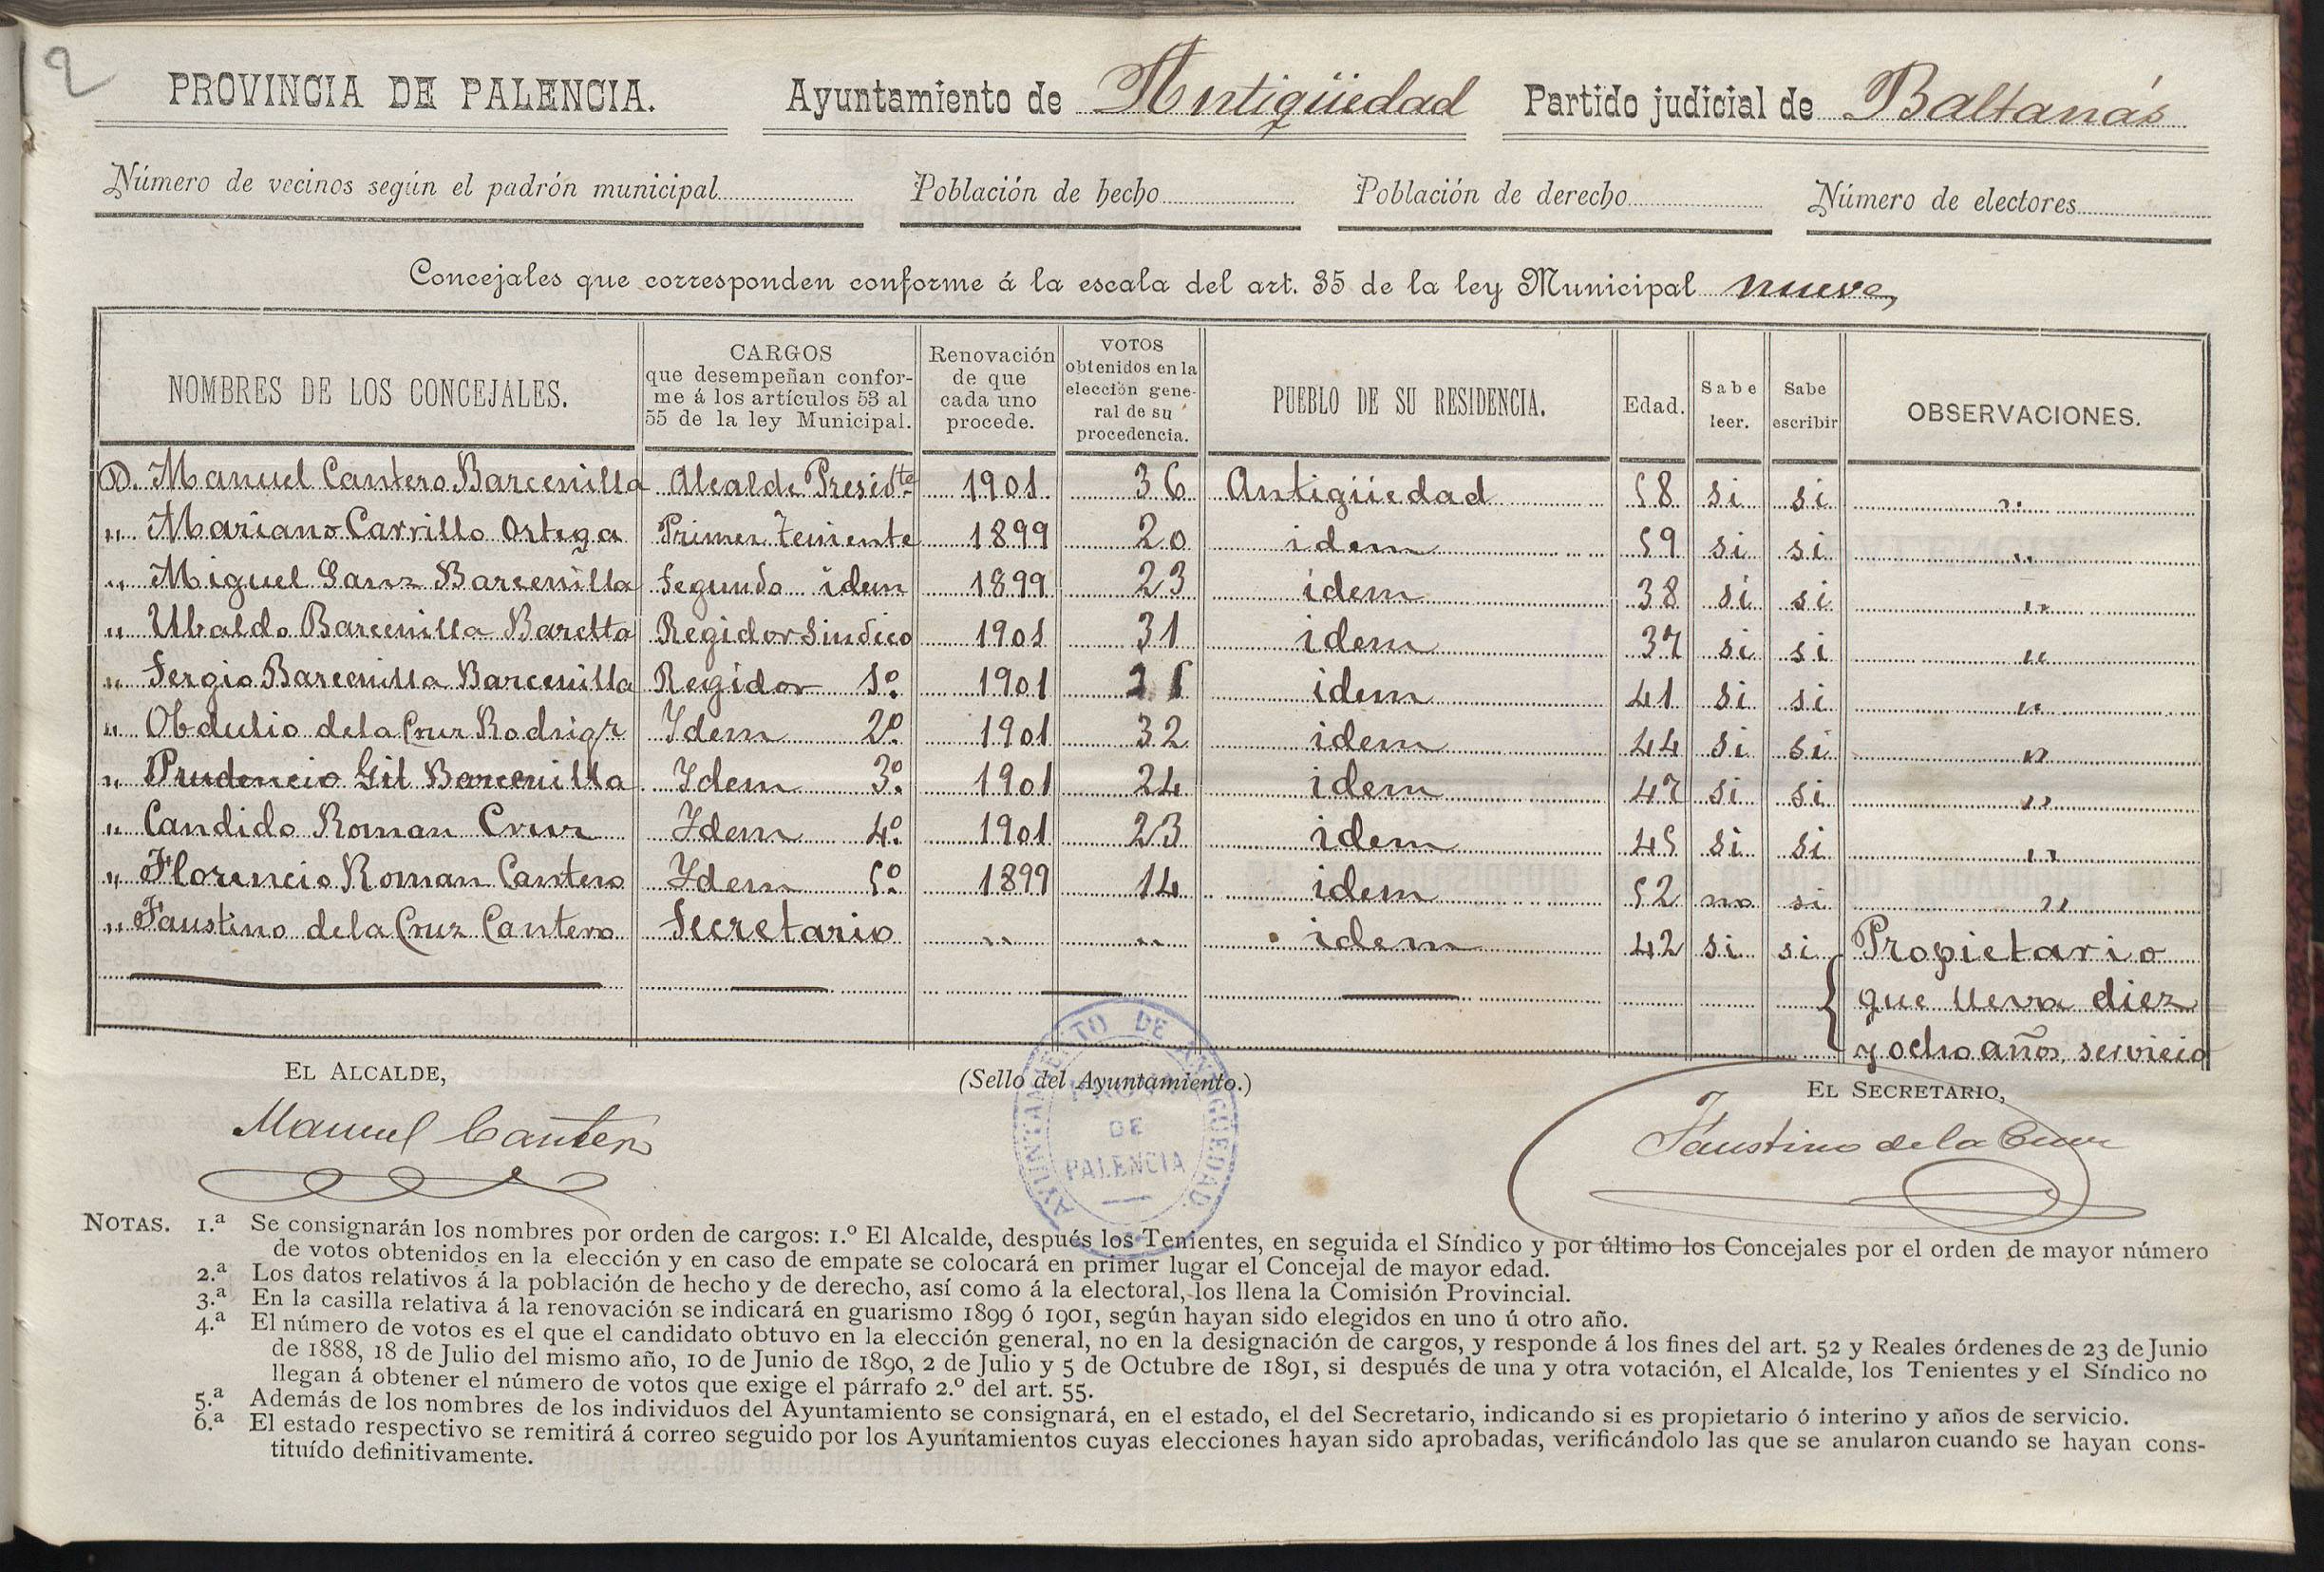 2
PROVINCIA DE PALENCIA. Ayuntamiento de Antigüedad Partido judicial de Baltanás
Número de vecinos según el padrón municipal Población de hecho Población de derecho Número de electores
Concejales que corresponden conforme á la escala del art. 35 de la ley Municipal nueve
NOMBRES DE LOS CONCEJALES. CARGOS que desempeñan conforme á los artículos 53 al 55 de la ley Municipal. Renovación de que cada uno procede. VOTOS obtenidos en la elección general de su procedencia. PUEBLO DE SU RESIDENCIA. Edad. Sabe leer. Sabe escribir OBSERVACIONES.
D. Manuel Cantero Barcenilla Alcalde Presidte 1901 36 Antigüedad 58 si si „
„ Mariano Carrillo Ortega Primer Teniente 1899 20 idem 59 si si „
„ Miguel Sanz Barcenilla Segundo idem 1899 23 idem 38 si si „
„ Ubaldo Barcenilla Baretta Regidor Sindico 1901 31 idem 37 si si „
„ Sergio Barcenilla Barcenilla Regidor 1º 1901 idem 41 si si „
„ Obdulio de la Cruz Rodrigz Ydem 2º 1901 32 idem 44 si si „
„ Prudencio Gil Barcenilla Ydem 3º 1901 24 idem 47 si si „
„ Candido Roman Cruz Ydem 4º 1901 23 idem 45 si si „
„ Florencio Roman Cantero Ydem 5º 1899 14 idem 52 no si „
„ Faustino de la Cruz Cantero Secretario „ „ idem 42 si si Propietario
que lleva diez
y ocho años servicio
EL ALCALDE, (Sello del Ayuntamiento.) EL SECRETARIO,
Manuel Cantero Faustino de la Cruz
AYUNTAMIENTO DE ANTIGÜEDAD
DE
PALENCIA
NOTAS. 1.ª Se consignarán los nombres por orden de cargos: 1.º El Alcalde, después los Tenientes, en seguida el Síndico y por último los Concejales por el orden de mayor número
de votos obtenidos en la elección y en caso de empate se colocará en primer lugar el Concejal de mayor edad.
2.ª Los datos relativos á la población de hecho y de derecho, así como á la electoral, los llena la Comisión Provincial.
3.ª En la casilla relativa á la renovación se indicará en guarismo 1899 ó 1901, según hayan sido elegidos en uno ú otro año.
4.ª El número de votos es el que el candidato obtuvo en la elección general, no en la designación de cargos, y responde á los fines del art. 52 y Reales órdenes de 23 de Junio
de 1888, 18 de Julio del mismo año, 10 de Junio de 1890, 2 de Julio y 5 de Octubre de 1891, si después de una y otra votación, el Alcalde, los Tenientes y el Síndico no
llegan á obtener el número de votos que exige el párrafo 2.º del art. 55.
5.ª Además de los nombres de los individuos del Ayuntamiento se consignará, en el estado, el del Secretario, indicando si es propietario ó interino y años de servicio.
6.ª El estado respectivo se remitirá á correo seguido por los Ayuntamientos cuyas elecciones hayan sido aprobadas, verificándolo las que se anularon cuando se hayan cons-
tituído definitivamente.